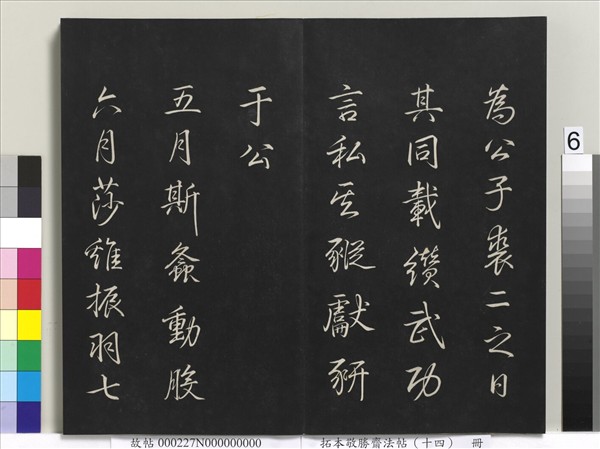 為公子裘二之日
其同載纘武功
言私其豵獻豣
于公
五月斯螽動股
六月莎雞振羽七
6
故帖 000227N000000000
拓本敬勝齋法帖（十四） 冊